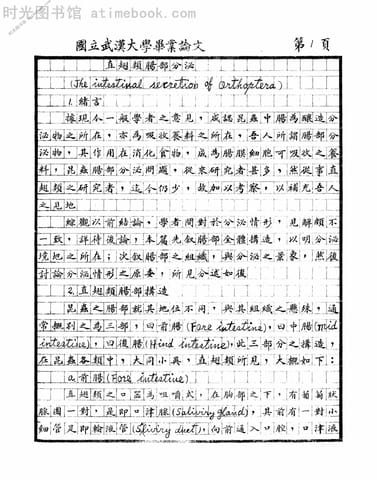 时光图书馆 atimebook.com
國立武漢大學畢業論文 第1頁
直翅類腸部分泌
(The intestinal secretion of Orthoptera)
1.緒言
據現今一般學者之意見,咸認昆虫中腸為釀造分
泌物之所在,亦為吸收養料之所在,吾人所謂腸部分
泌物,其作用在消化食物,成為腸膜細胞可吸收之養
料,昆蟲腸部分泌問題,從來研究者甚多,然從事直
翅類之研究者,迄今仍少,故加以考察,以補充吾人
之見地
綜觀以前結論,學者間對於分泌情形,見解頗不
一致,詳待後論,本篇先叙腸部全體構造,以明分泌
境地之所在;次叙腸部之組織,與分泌之景象,然後
討論分泌情形之原委,所見分述如後
2.直翅類腸部構造
昆蟲之腸部就其地位不同,與其組織之懸殊,通
常概別之為三部,曰前腸(Fore intestine),曰中腸(mid
intestine),曰後腸(Hind intestine),此三部分之構造,
在昆蟲各類中,大同小異,直翅類所見,大概如下:
a.前腸(Fore intestine)
直翅類之口器為咀嚼式,在胸部之下,有葡萄狀
腺團一對,是即口津腺(Saliviry gland),具前有一對小
細管是即輸液管(Sliviry duct),向前通入口腔,口津液